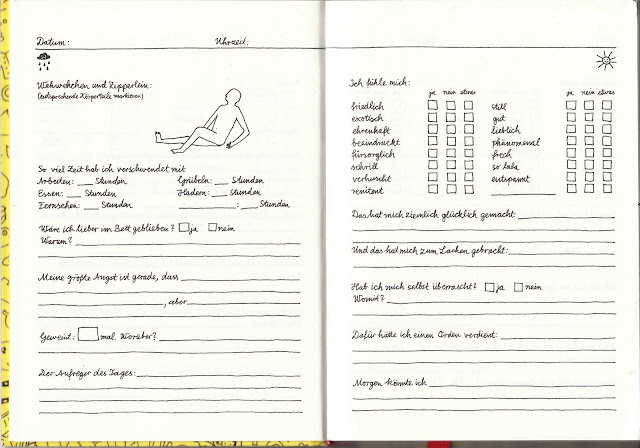 Datum:
Uhrzeit:
Wehwehchen und Zipperlein:
(entsprechende Körperteile markieren)
So viel Zeit hab ich verschwendet mit
Arbeiten: ___ Stunden Grübeln: ___ Stunden
Essen: ___ Stunden Hadern: ___ Stunden
Fernsehen: ___ Stunden ___: ___ Stunden
Wäre ich lieber im Bett geblieben? ja nein
Warum?
Meine größte Angst ist gerade, dass
, aber
Geweint: mal. Worüber?
Der Aufreger des Tages:
Ich fühle mich:
ja nein etwas ja nein etwas
friedlich still
exotisch gut
ehrenhaft lieblich
beeindruckt phänomenal
fürsorglich frech
schrill so lala
verhuscht entspannt
renitent
Das hat mich ziemlich glücklich gemacht:
Und das hat mich zum Lachen gebracht:
Hab ich mich selbst überrascht? ja nein
Womit?
Dafür hätte ich einen Orden verdient:
Morgen könnte ich